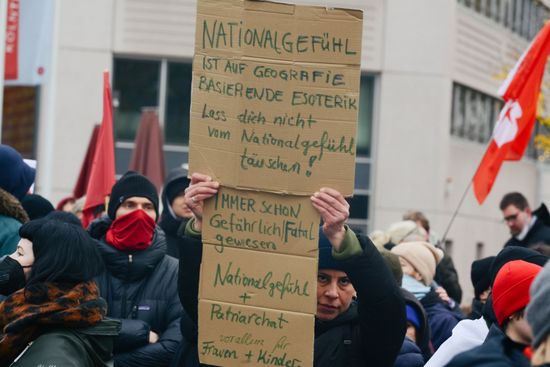 NATIONALGEFÜHL
IST AUF GEOGRAFIE
BASIERENDE ESOTERIK
Lass dich nicht
vom Nationalgefühl
täuschen!
IMMER SCHON
Gefährlich/Fatal
gewesen
Nationalgefühl
+
Patriarchat
vorallem für
Frauen + Kinder.
KÖLNTR